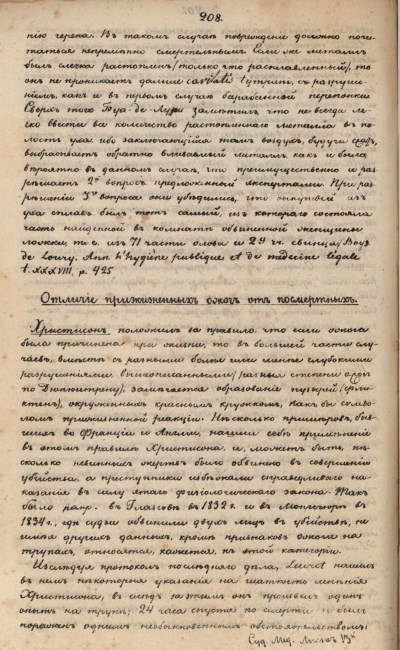 208.
нію черепа. Въ такомъ случаѣ поврежденіе должно почи-
таться непремѣнно смертельнымъ. Если же металлъ
былъ слегка растопленъ /только что расплавленный/, то
онъ не проникаетъ далѣе cavitatis tympani, съ разруше-
ніемъ, какъ и въ первомъ случаѣ барабанной перепонки
Сверхъ того Буа-де-Лури замѣтилъ что не всегда лег-
ко ввести въ количество растопленнаго металла въ по-
лость уха ибо заключающійся тамъ воздухъ, будучи
выбрасываетъ обратно вливаемый металлъ какъ и было
вѣроятно въ данномъ случаѣ, что преимущественно и раз-
рѣшаетъ 2й вопросъ предложенной экспертами. При раз
рѣшеніи 3го вопроса они убѣдились, что вынутый изъ
уха сплавъ былъ тотъ самый, изъ котораго состояла
часть найденной въ комнатѣ обвиненной женщины
ложки, т. е. изъ 71 части олова и 29 ч. свинца /Boys
de Loury. Ann d'hygiène publique et de médecine légale
t. XXXVIII, p. 425
Отличіе прижизненныхъ ожоговъ отъ посмертныхъ.
Христисонъ положилъ за правило что если ожога
была причинена при жизни, то въ большей части слу-
чаевъ, вмѣстѣ съ разными болѣе или менѣе глубокими
разрушеніями вышеописанными /разныя степени ожоги
по Дюпюитрену/, замѣчается образованіе пузырей /флик-
тенъ/, окруженныхъ краснымъ кружкомъ, какъ бы симво-
ломъ прижизненной реакціи. Нѣсколько примѣровъ, быв-
шихъ во Франціи и Англіи, нашли себѣ примѣненіе
въ этомъ правилѣ Христисона и, можетъ быть, нѣ-
сколько невинныхъ жертвъ было обвинено въ совершеніи
убійства, а преступники избѣгали справедливаго на-
казанія въ силу этого физіологическаго закона. Такъ
было напр. въ Глазговѣ въ 1832 г. и въ въ
1834 г., гдѣ судъ обвинилъ двухъ лицъ въ убійствѣ, не
имѣя другихъ данныхъ, кромѣ признаковъ ожога на
трупахъ, относятся, кажется, къ этой категоріи.
Изслѣдуя протоколъ послѣдняго дѣла, Leuret нашелъ
въ немъ нѣкоторыя указанія на шаткость мнѣнія
Христисона, въ слѣдъ за тѣмъ онъ произвелъ одинъ
опытъ на трупѣ, 24 часа спустя по смерти и былъ
пораженъ однимъ необыкновеннымъ обстоятельствомъ:
Суд. Мед. Листъ 13й